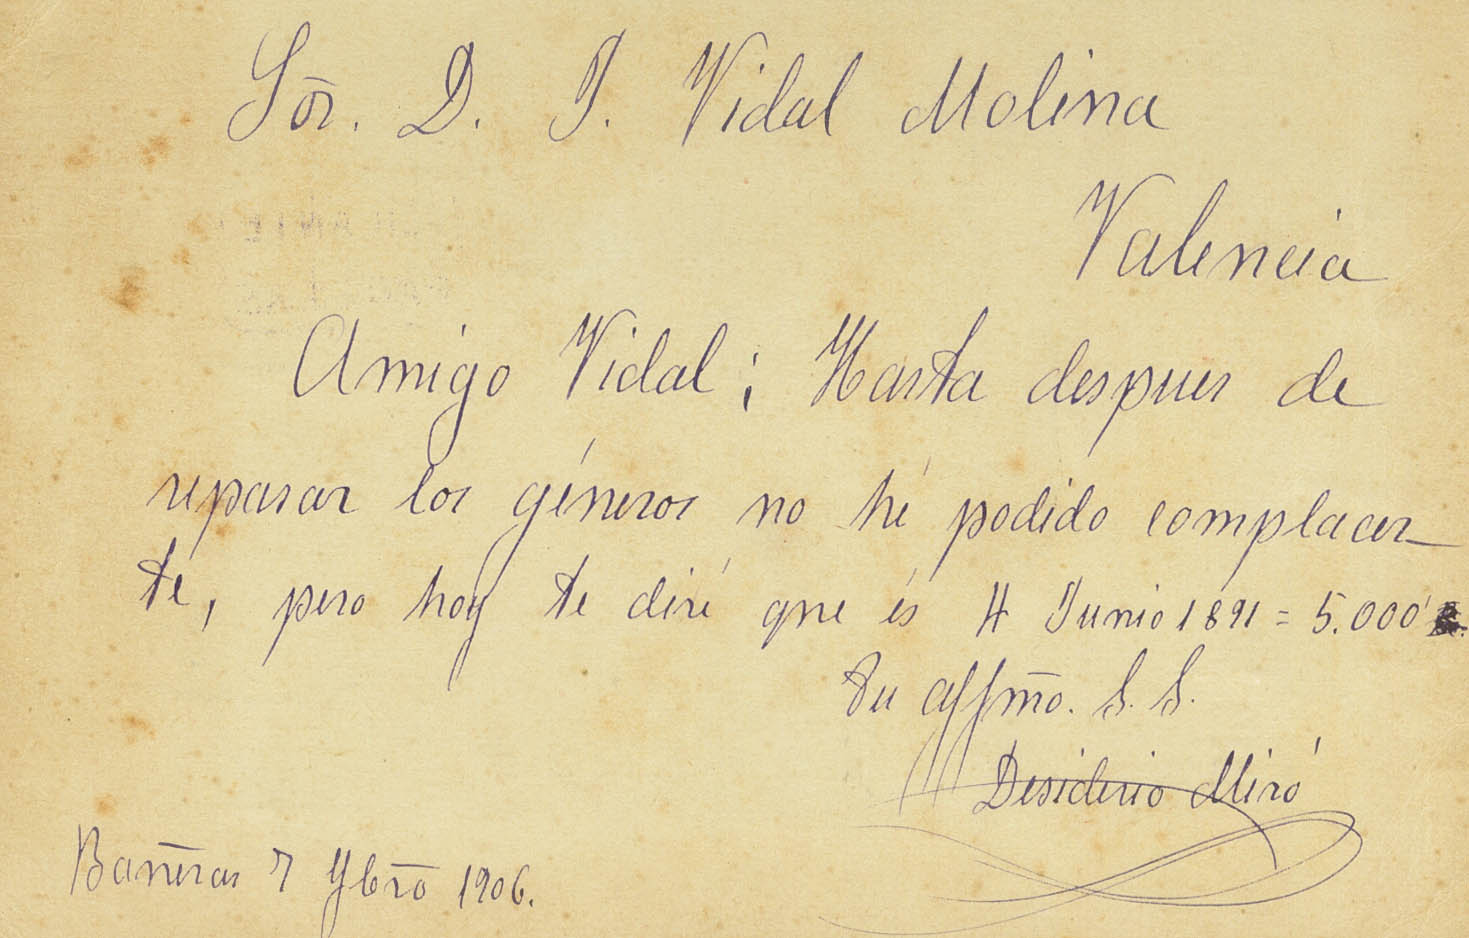 Sōr. D. J. Vidal Molina
Valencia
Amigo Vidal; Hasta despues de
repasar los géneros no hé podido complacer
te, pero hoy te diré que és 4 Junio 1891 = 5.000'
tu affmo. S. S.
Desiderio Miró
Bañeras 7 9brō 1906.